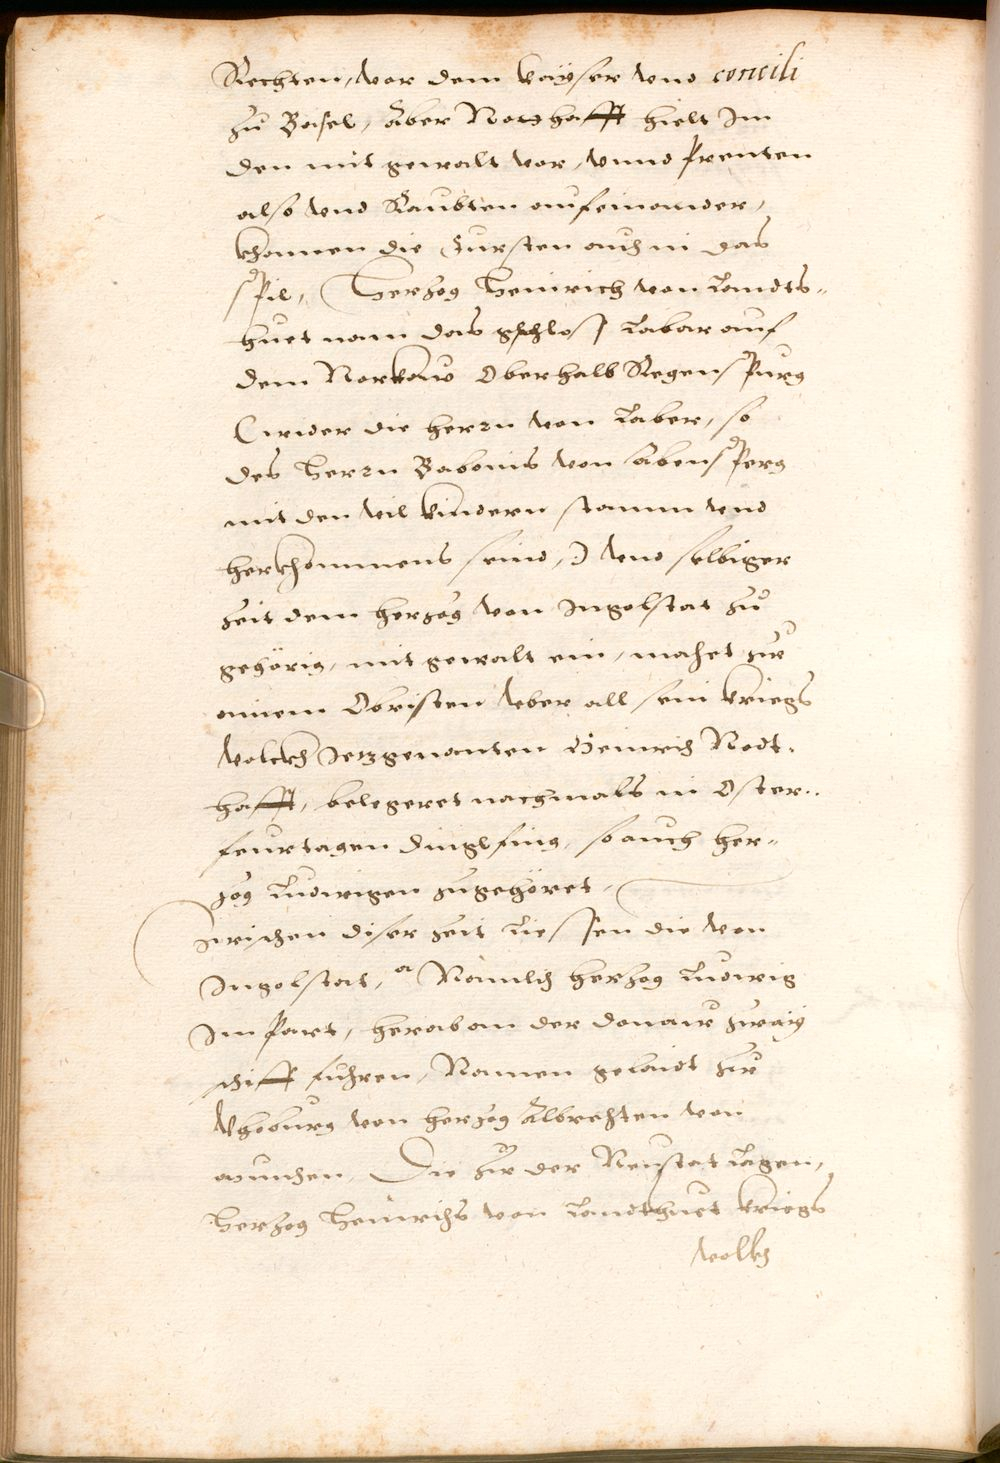 Rechten, vor dem kayser vnd concili
zu Basel, Aber Notthafft hielt Im
den mit gewalt vor, vnnd Prenten
also vnd Raubten aufeinander,
khamen die Fursten auch in das
spil, Herzog Heinrich von Landts-
huet nam das gschloss Labar auf
dem Norkaw Oberhalb Regenspurg
(wider die herrn von Laber, so
des Herrn Babonis von Abensperg
mit den vil kindern stamm vnd
herkhommens seind,) vnd selbiger
zeit dem herzog von Ingolstat zu
gehörig, mit gewalt ein, machet zu
ainem Obristen vber all sein kriegs
volckh Jetzgenanten Heinrich Nodt-
hafft, belegeret nachmals in Oster-
feurtagen Dinglfing, so auch her-
zog Ludwigen zugehöret,
Zwischen diser zeit Liessen die von
Ingolstat, Nämlich herzog Ludwig
Im Part, herab an der Donaw zway
schiff fuhren, Namen gelaidt zu
Vhoburg von herzog Albrechten von
munchen, Die zu der Neustat Lagen,
Herzog Heinrichs von Landthuet kriegs
volkh